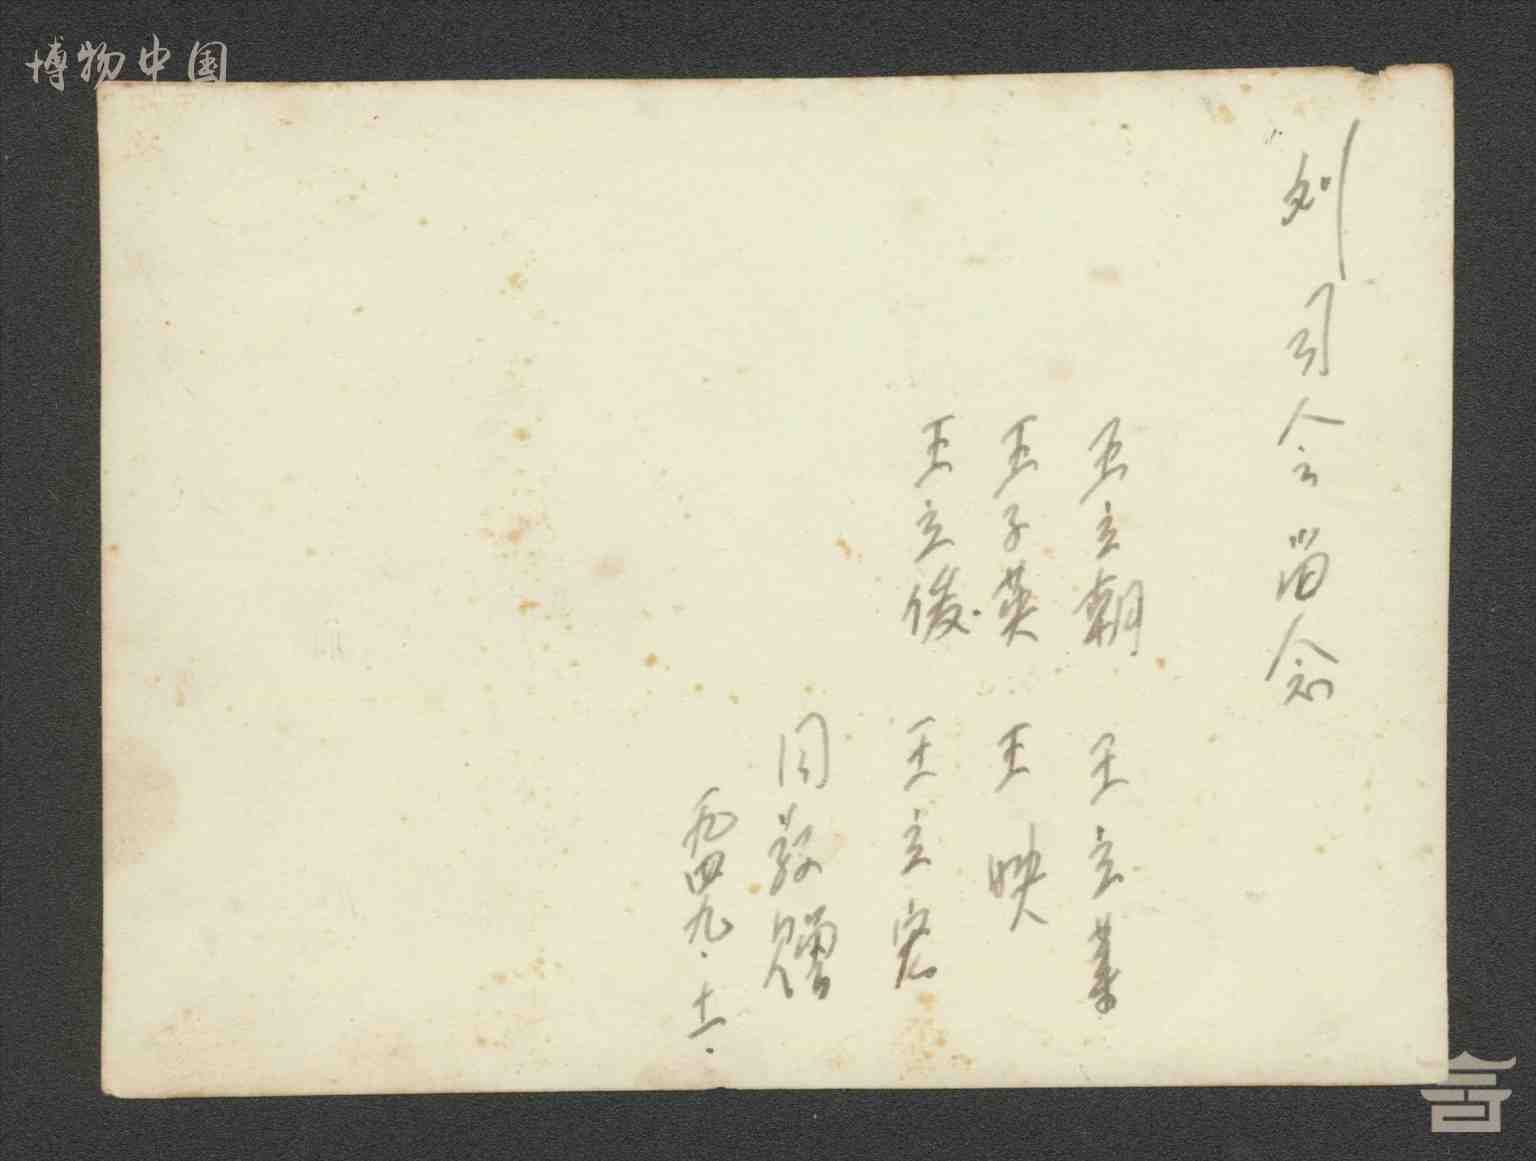 博物中国
刘司令留念
王立朝 王立業
王子英 王映
王立俊 王立宏
同敬贈
一九四九.十一.